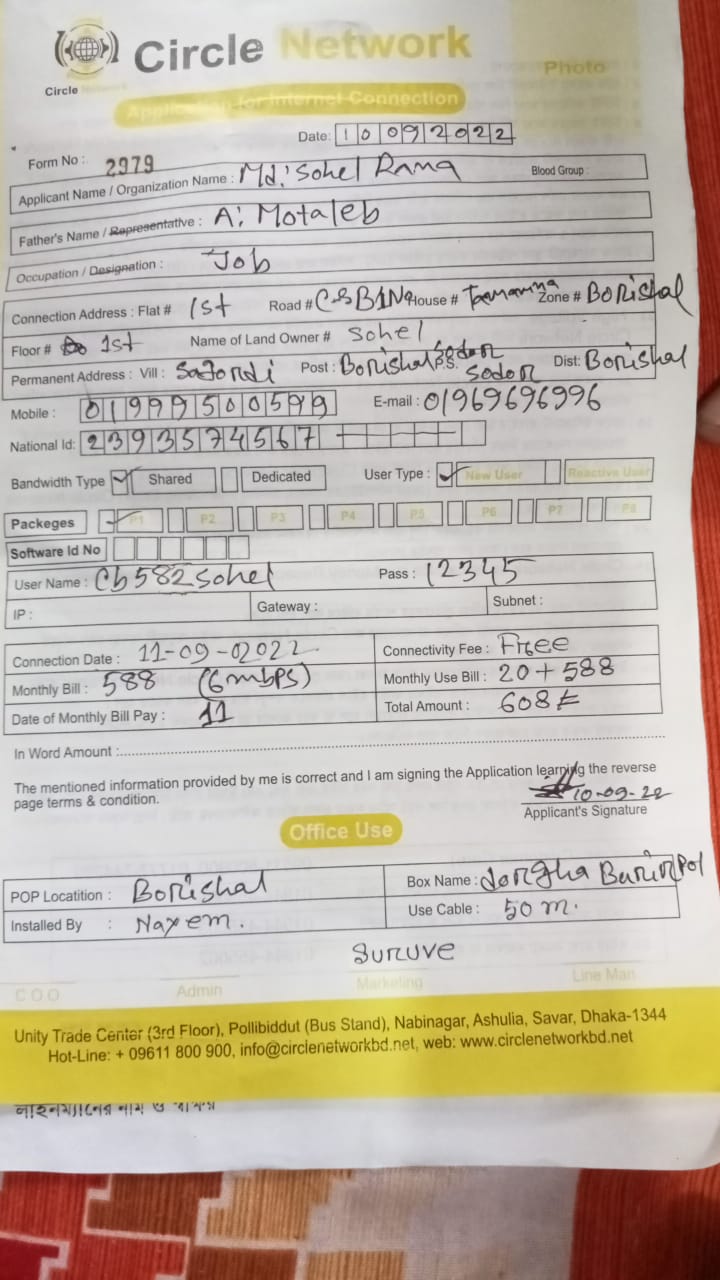 Circle Network
Circle Network
Photo
Application for Internet Connection
Date: 10092022
Form No : 2979
Applicant Name / Organization Name : Md: Sohel Rana Blood Group :
Father's Name / Representative : A: Motaleb
Occupation / Designation : Job
Connection Address : Flat # 1st Road # House # Zone # Borishal
Floor # 1st Name of Land Owner # Sohel
Permanent Address : Vill : Post : Borishal Sodor P.S. Sodor Dist: Borishal
Mobile : 01999500599 E-mail : 01969696996
National Id: 2393574567
Bandwidth Type Shared Dedicated User Type : New User Reactive User
Packeges P1 P2 P3 P4 P5 P6 P7 P8
Software Id No
User Name : Cb582sohel Pass : 12345
IP : Gateway : Subnet :
Connection Date : 11-09-02022 Connectivity Fee : Free
Monthly Bill : 588 (6mbps) Monthly Use Bill : 20 + 588
Date of Monthly Bill Pay : 11 Total Amount : 608
In Word Amount :
The mentioned information provided by me is correct and I am signing the Application learning the reverse
page terms & condition.
10-09-22
Applicant's Signature
Office Use
POP Locatition : Borishal Box Name :
Installed By : Nayem. Use Cable : 50 m.
Suruve
C O O Admin Marketing Line Man
Unity Trade Center (3rd Floor), Pollibiddut (Bus Stand), Nabinagar, Ashulia, Savar, Dhaka-1344
Hot-Line: + 09611 800 900, info@circlenetworkbd.net, web: www.circlenetworkbd.net
লাইনম্যানের নাম ও স্বাক্ষর